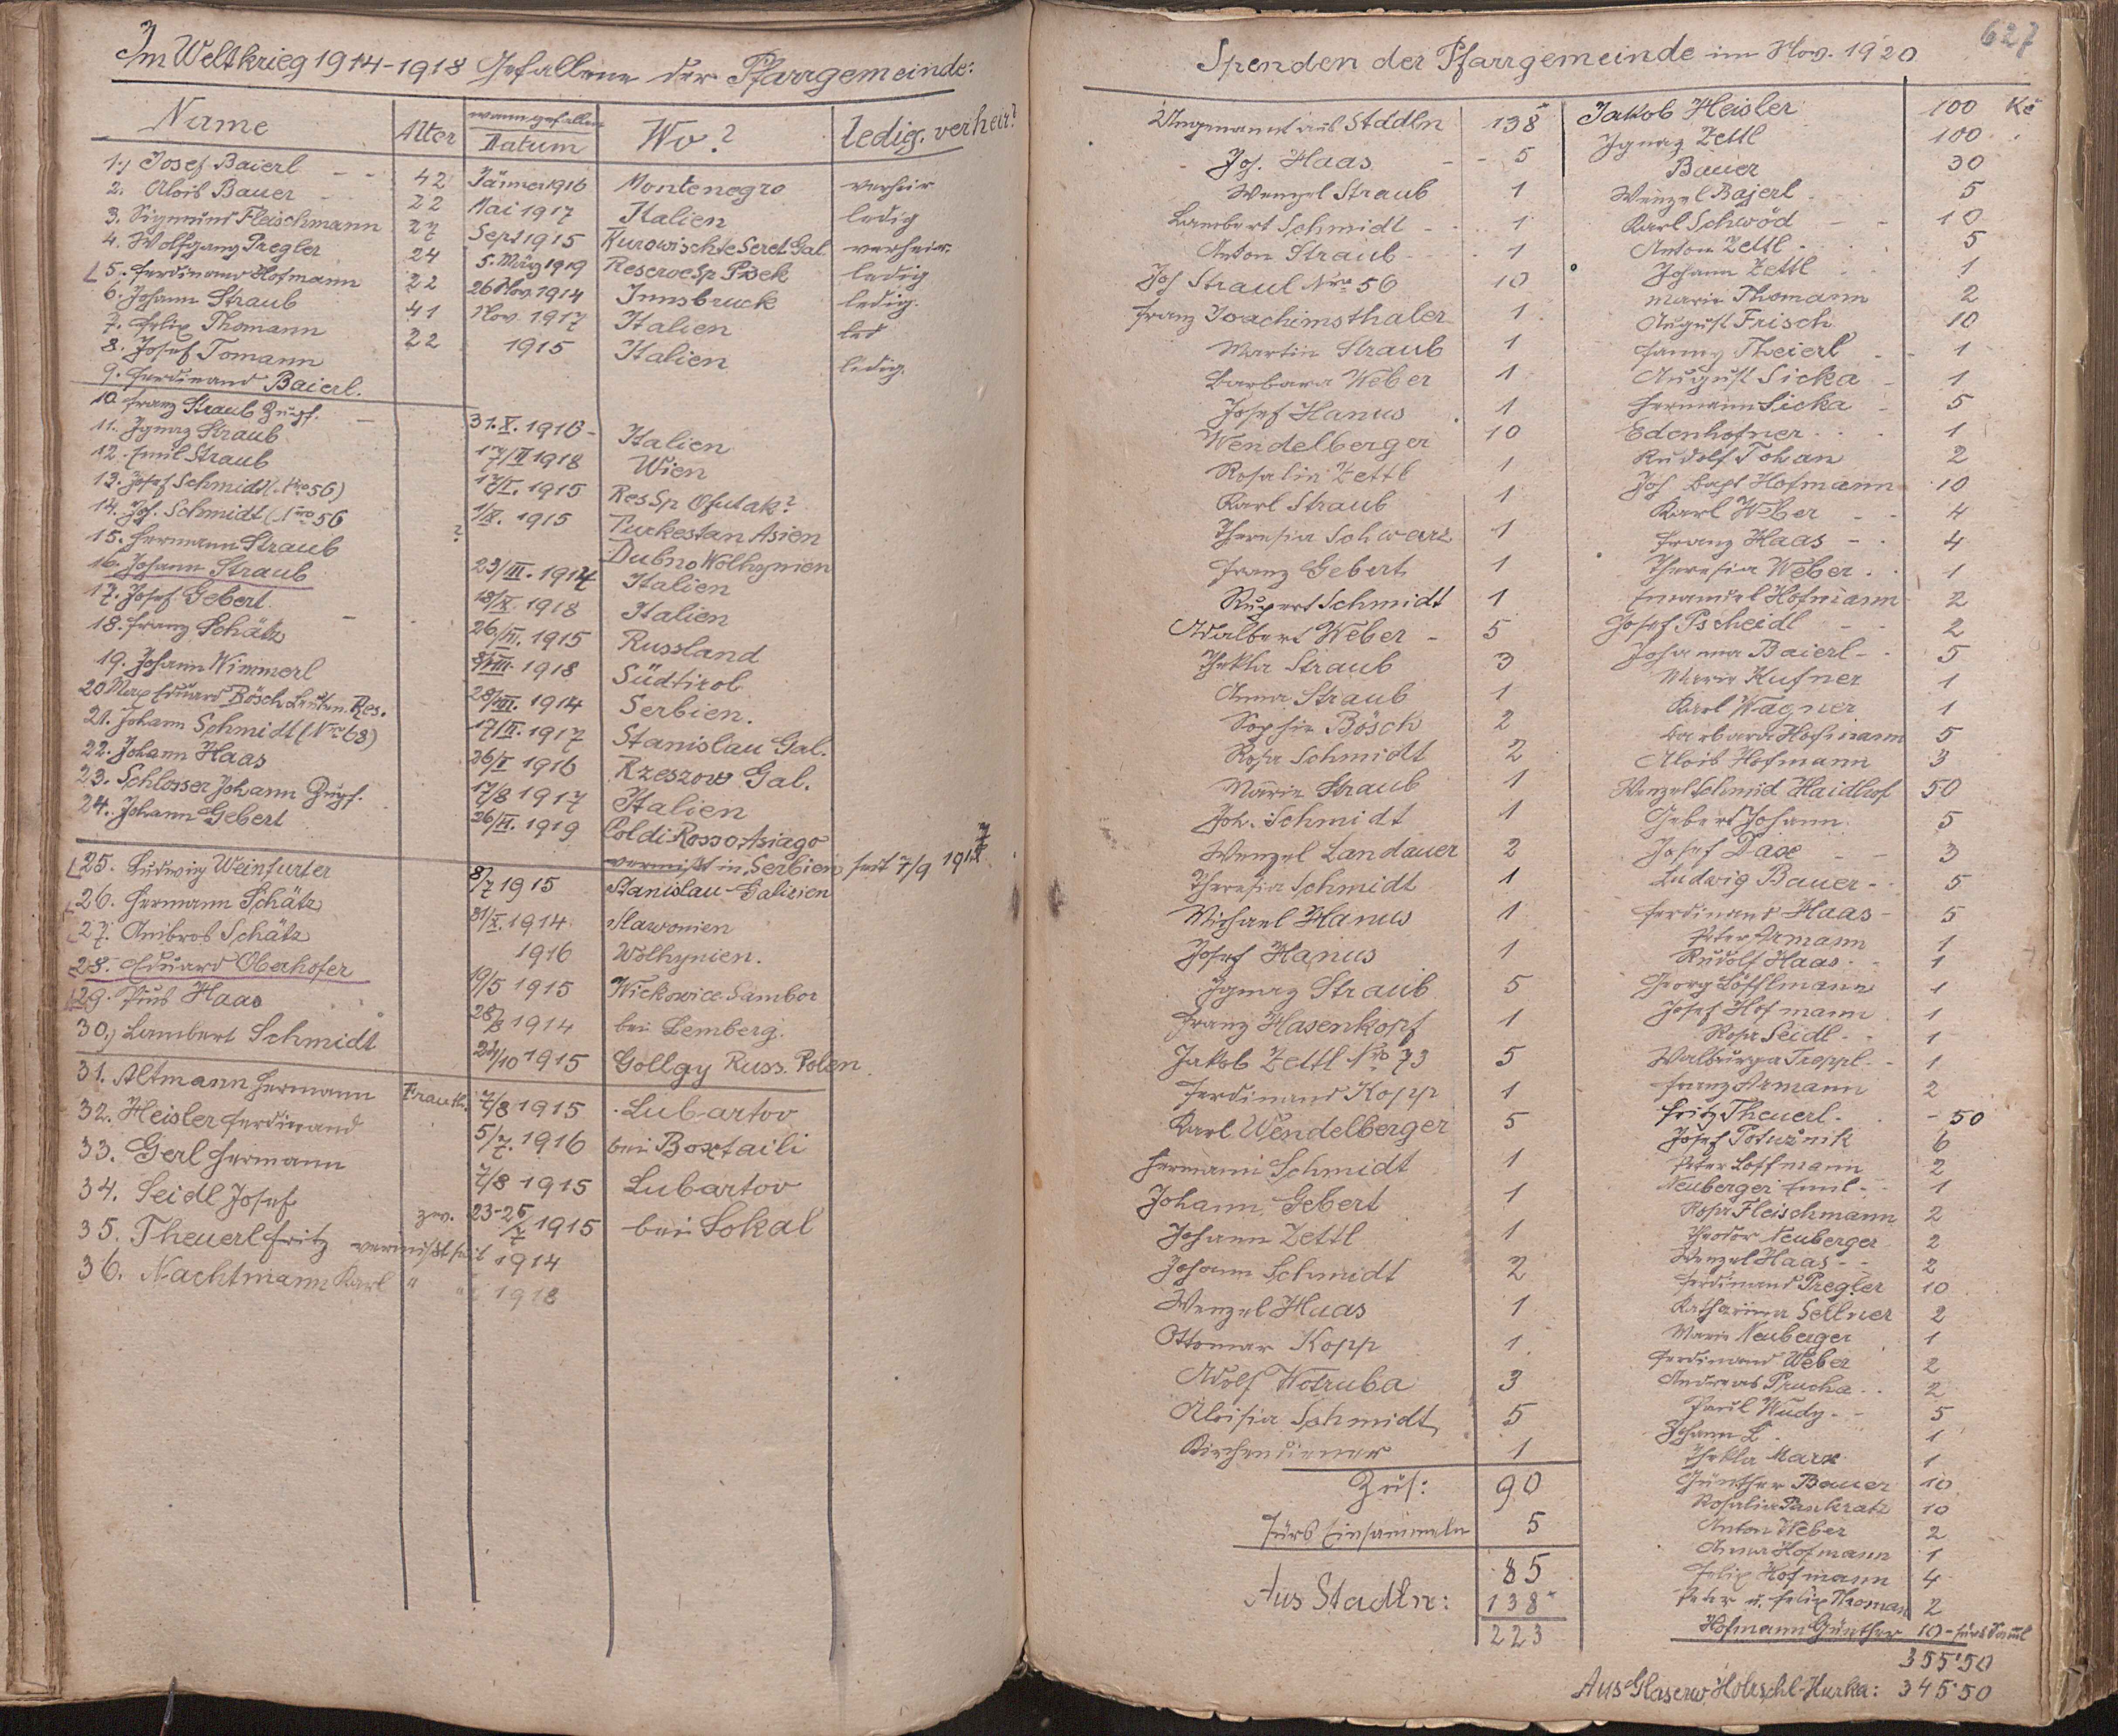 Im Weltkrieg 1914-1918 Gefallene der Pfarrgemeinde:
Name Alter wann gefallen Datum Wo? ledig. verheir?
1.) Josef Baierl - - 42 Jänner 1916 Montenegro verheir
2. Alois Bauer - - 22 Mai 1917 Italien ledig
3. Sigmund Fleischmann 27 Sept 1915 Kurowischte Seret Gal. verheir.
4. Wolfgang Pregler 24 5. März 1919 Reservesp. Pisek ledig
5. Ferdinand Hofmann 22 26 Nov. 1914 Innsbruck ledig.
6. Johann Straub 41 Nov. 1917 Italien led
7. Felix Thomann 22 1915 Italien ledig.
8. Josef Tomann
9. Ferdinand Baierl.
10. Franz Straub Zugsf. - 31.X.1916 - Italien
11. Ignaz Straub 17/II 1918 Wien
12. Emil Straub 1915 ResSp Ofutak?
13. Josef Schmidt (Nro 56) 1/X. 1915 Turkestan Asien
14. Joh. Schmidt (Nro 56 ? Dubno Wolhynien
15. Hermann Straub 23/III. 1917 Italien
16. Johann Straub 18/X. 1918 Italien
17. Josef Gebert - 26/VI. 1915 Russland
18. Franz Schätz 8/VIII. 1918 Südtirol
19. Johann Wimmerl 28/VIII. 1914 Serbien.
20 Max Eduard Bösch Leutn. Res. 17/II. 1917 Stanislau Gal.
21. Johann Schmidt (Nro 68) 26/I 1916 Rzeszow Gal.
22. Johann Haas 17/8 1917 Italien
23. Schlosser Johann Zugsf. 26/VI. 1919 Col di Rosso Asiago
24. Johann Gebert vermißt in Serbien seit 7/9 1914
25. Ludwig Weinfurter 8/7 1915 Stanislau-Galizien
26. Hermann Schätz 31/X. 1914 Slawonien
27. Ambros Schätz 1916 Wolhynien.
28. Eduard Oberhofer 19/5 1915 Wickowice Sambor
29. Pius Haas 28/8 1914 bei Lemberg.
30.) Lambert Schmidt 24/10 1915 Gollgy Russ. Polen
31. Altmann Hermann Frauth. 7/8 1915 Lubartov
32. Heisler Ferdinand 5/7. 1916 bei Boxtaili
33. Gerl Hermann 7/8 1915 Lubartov
34. Seidl Josef zw. 23-25/7 1915 bei Sokal
35. Theuerl Fritz vermißt seit 1914
36. Nachtmann Karl " " 1918
627
Spenden der Pfarrgemeinde im Nov. 1920
Ungenannt aus Staddln 138
Joh. Haas - - 5
Wenzel Straub 1
Lambert Schmidt - 1
Anton Straub - 1
Joh Straub Nro 56 10
Franz Joachimsthaler 1
Martin Straub 1
Barbara Weber 1
Josef Hanus 1
Wendelberger 10
Rosalia Zettl 1
Karl Straub 1
Theresia Schwarz 1
Franz Gebert 1
Rupert Schmidt 1
Adalbert Weber - 5
Thekla Straub 3
Anna Straub 1
Sophie Bösch 2
Rosa Schmidt 2
Marie Straub 1
Joh. Schmidt 1
Wenzel Landauer 2
Theresia Schmidt 1
Michael Hanus 1
Josef Hanus 1
Ignaz Straub 5
Franz Hasenkopf 1
Jakob Zettl Nro 73 5
Ferdinand Kopp 1
Karl Wendelberger 5
Hermann Schmidt 1
Johann Gebert 1
Johann Zettl 1
Johann Schmidt 2
Wenzel Haas 1
Ottomar Kopp 1
Adolf Wotruba 3
Aloisia Schmidt 5
Kirchendiener 1
Zus: 90
Fürs Einsammeln 5
85
Aus Stadln: 138
223
Jakob Heisler 100 Kč
Ignaz Zettl 100
Bauer 30
Wenzel Bajerl 5
Karl Schwöd - - 10
Anton Zettl 5
Johann Zettl 1
Marie Thomann 2
August Frisch 10
Fanny Theierl - 1
August Sicka - 1
Hermann Sicka - 5
Edenhofner 1
Rudolf Johan 2
Joh Bapt Hofmann 10
Karl Weber - - 4
Franz Haas - - 4
Theresia Weber 1
Emanuel Hofmann 2
Josef Pscheidl - - 2
Johanna Baierl - 5
Marie Kufner 1
Karl Wagner 1
Barbara Hofmann 5
Alois Hofmann 3
Wenzel Schmid Haidhof 50
Gebert Johann 5
Josef Dax - - 3
Ludwig Bauer - 5
Ferdinand Haas - 5
Peter Armann 1
Rudolf Haas - 1
Georg Löfflmann 1
Josef Hofmann 1
Rosa Seidl - 1
Walburga Treppl - 1
Franz Armann 2
Fritz Theuerl - 50
Josef Potužnik 6
Peter Loffmann 2
Neuberger Emil - 1
Rosa Fleischmann 2
Theodor Neuberger 2
Wenzel Haas - - 2
Ferdinand Pregler 10
Katharina Sellner 2
Marie Neuberger 1
Ferdinand Weber 2
Andreas Prucha 2
Paul Wudy - 5
Johann L. 1
Thekla Marx 1
Günther Bauer 10
Rosalia Pankratz 10
Anton Weber 2
Anna Hofmann 1
Felix Hofmann 4
Peter u. Felix Thoman 2
Hofmann Günther 10 - fürs
355'50
Aus Glaserw Holzschl-Hurka: 345'50